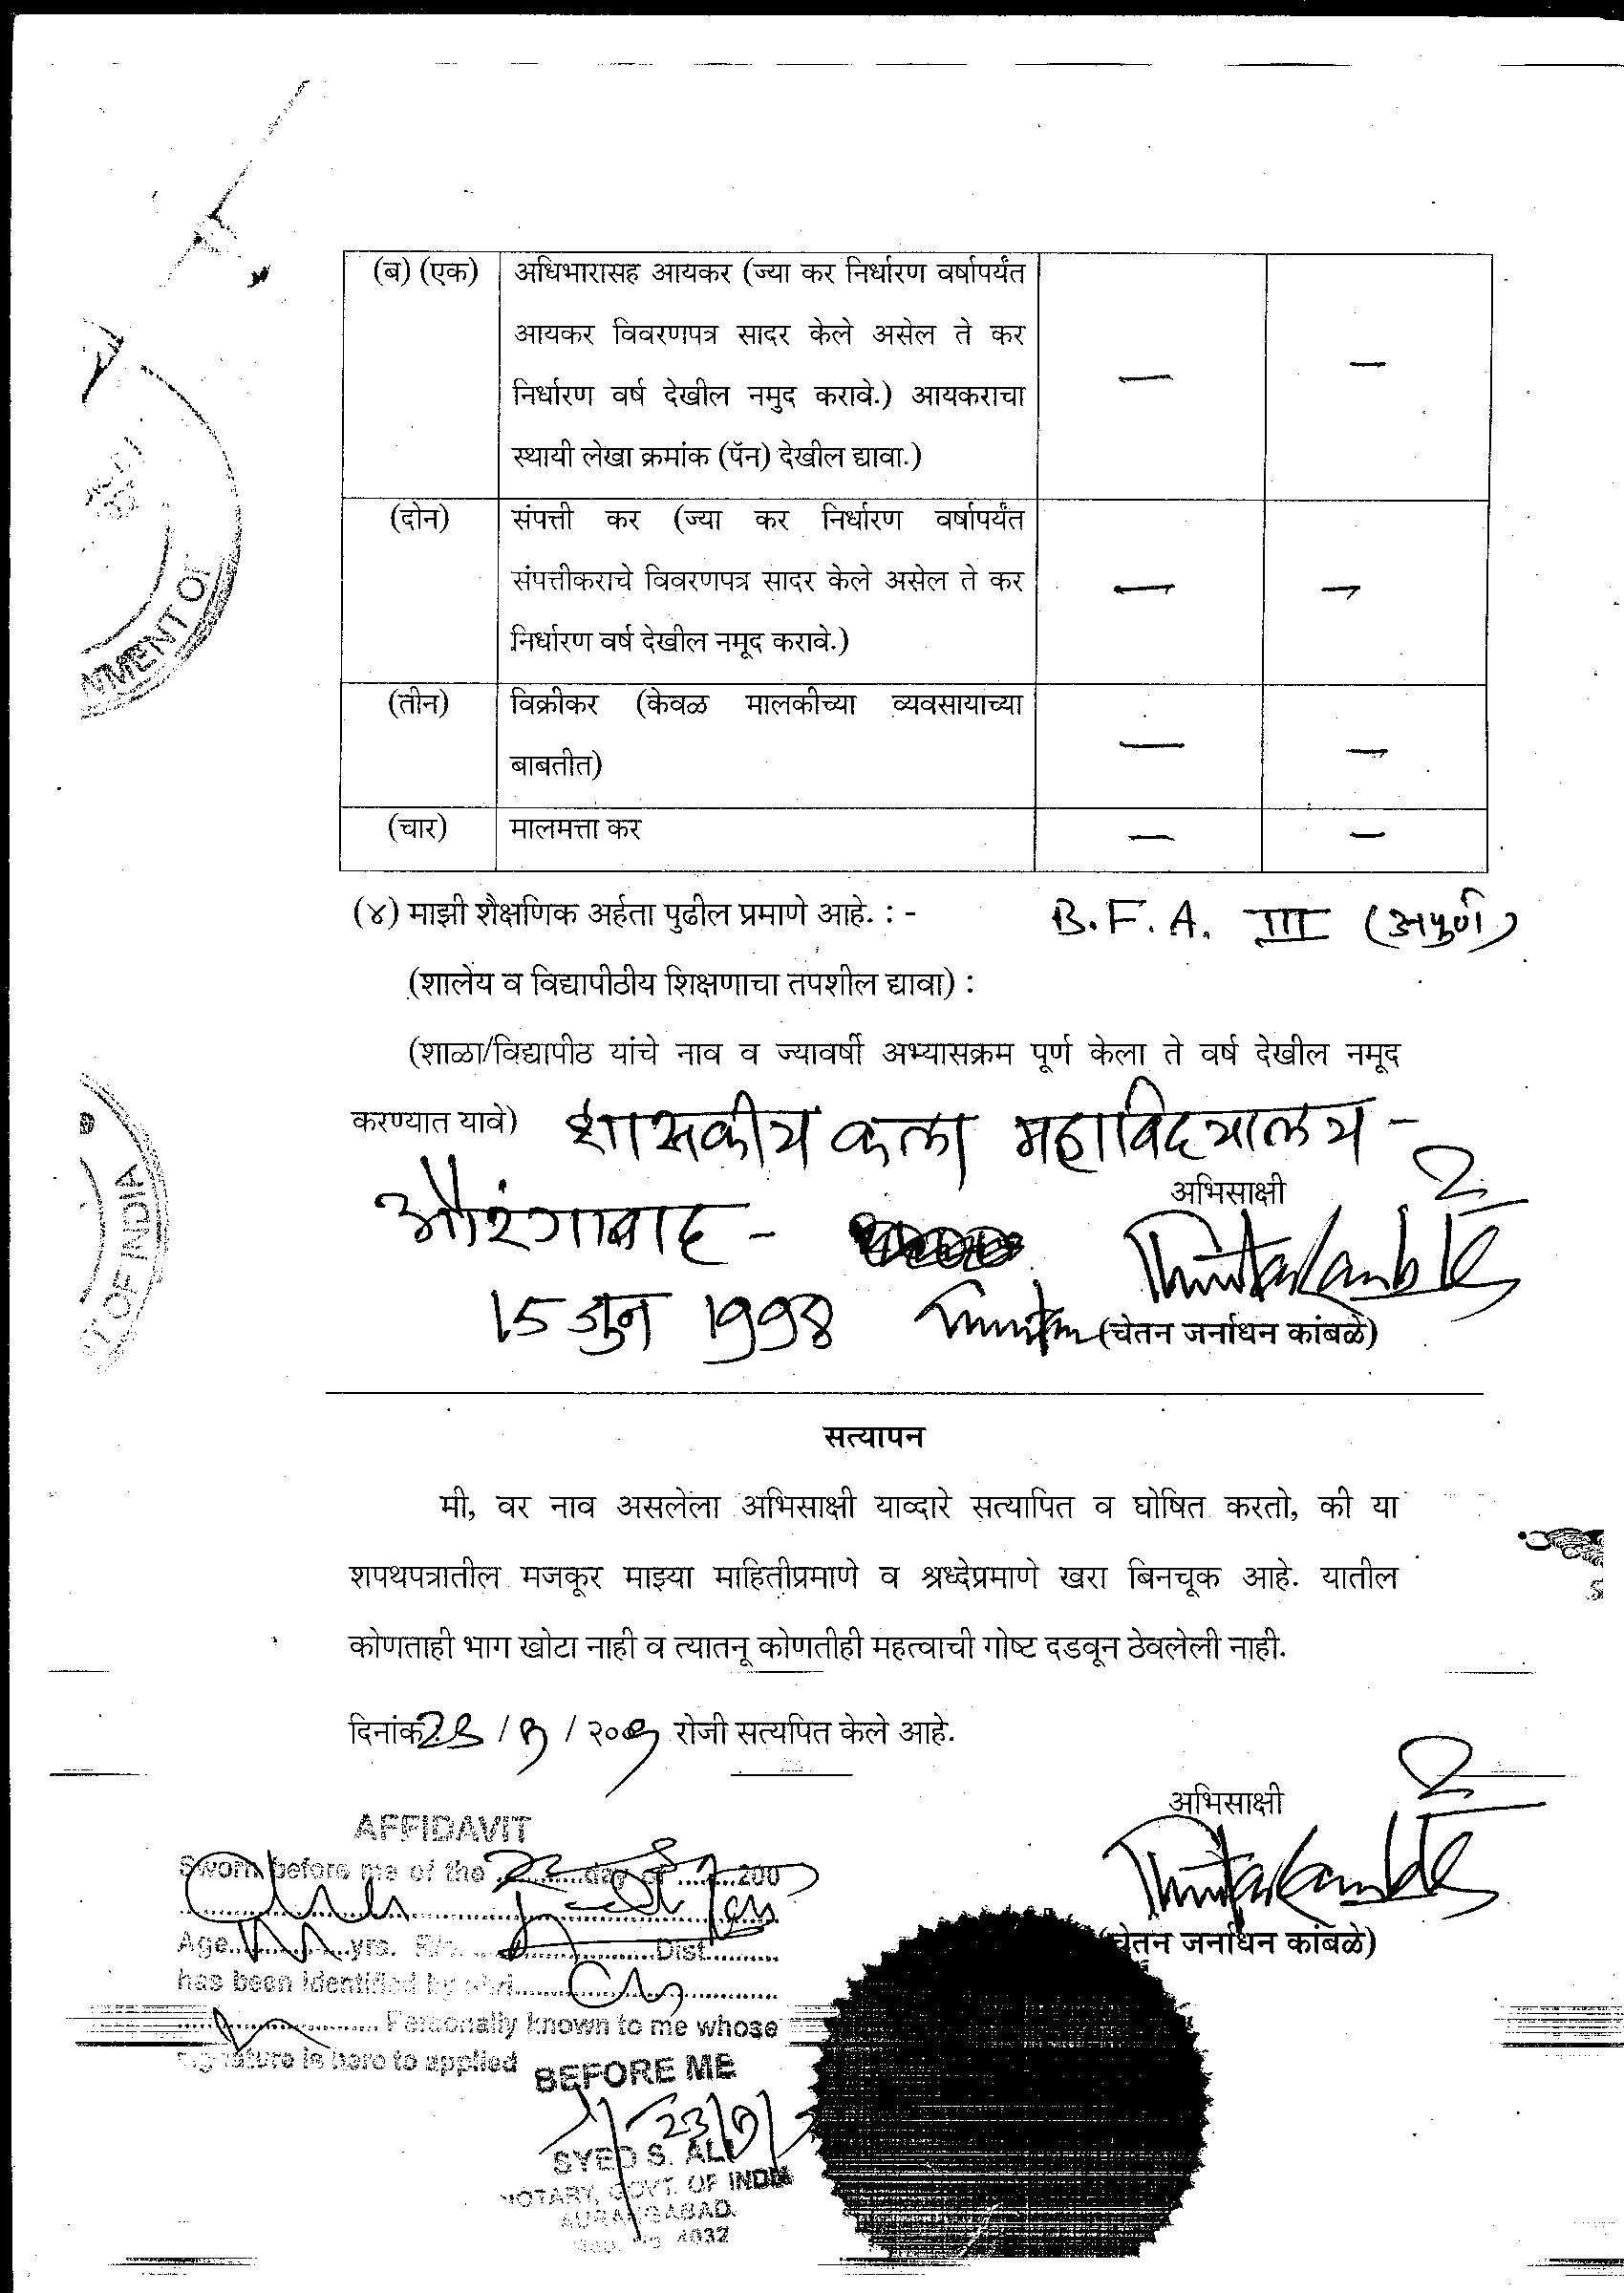 (ब) (एक) अधिभारासह आयकर (ज्या कर निर्धारण वर्षापर्यंत — —
आयकर विवरणपत्र सादर केले असेल ते कर
निर्धारण वर्ष देखील नमुद करावे.) आयकराचा
स्थायी लेखा क्रमांक (पॅन) देखील द्यावा.)
(दोन) संपत्ती कर (ज्या कर निर्धारण वर्षापर्यंत — —
संपत्तीकराचे विवरणपत्र सादर केले असेल ते कर
निर्धारण वर्ष देखील नमूद करावे.)
(तीन) विक्रीकर (केवळ मालकीच्या व्यवसायाच्या — —
बाबतीत)
(चार) मालमत्ता कर — —
(४) माझी शैक्षणिक अर्हता पुढील प्रमाणे आहे. : - B.F.A. III (अपुर्ण)
(शालेय व विद्यापीठीय शिक्षणाचा तपशील द्यावा) :
(शाळा/विद्यापीठ यांचे नाव व ज्यावर्षी अभ्यासक्रम पूर्ण केला ते वर्ष देखील नमूद
करण्यात यावे) शासकीय कला महाविद्यालय -
औरंगाबाद -
अभिसाक्षी
15 जुन 199४
(चेतन जर्नाधन कांबळे)
सत्यापन
मी, वर नाव असलेला अभिसाक्षी याव्दारे सत्यापित व घोषित करतो, की या
शपथपत्रातील मजकूर माझ्या माहितीप्रमाणे व श्रध्देप्रमाणे खरा बिनचूक आहे. यातील
कोणताही भाग खोटा नाही व त्यातनू कोणतीही महत्वाची गोष्ट दडवून ठेवलेली नाही.
दिनांक / / २००९ रोजी सत्यपित केले आहे.
अभिसाक्षी
(चेतन जर्नाधन कांबळे)
AFFIDAVIT
Sworn before me of the 23 day of 200
Age yrs. R/o. Dist.
has been identified by shri
Personally known to me whose
signature is hero to applied
BEFORE ME
23/9/
SYED S. ALI
NOTARY, GOVT. OF INDIA
AURANGABAD.
4032
NMENT OF
OF INDIA